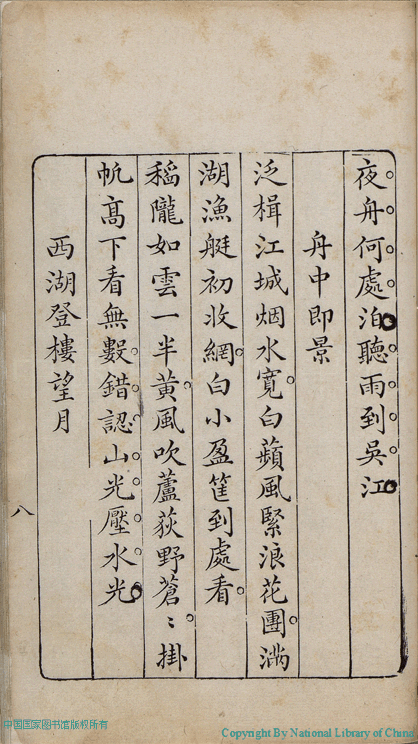 夜舟何處泊聽雨到吳江
舟中即景
泛楫江城烟水寛白蘋風緊浪花團滿
湖漁艇初收網白小盈筐到處看
稻隴如雲一半黃風吹蘆荻野蒼〻掛
帆高下看無數錯認山光壓水光
西湖登樓望月
八
中国国家图书馆版权所有
Copyright By National Library of China